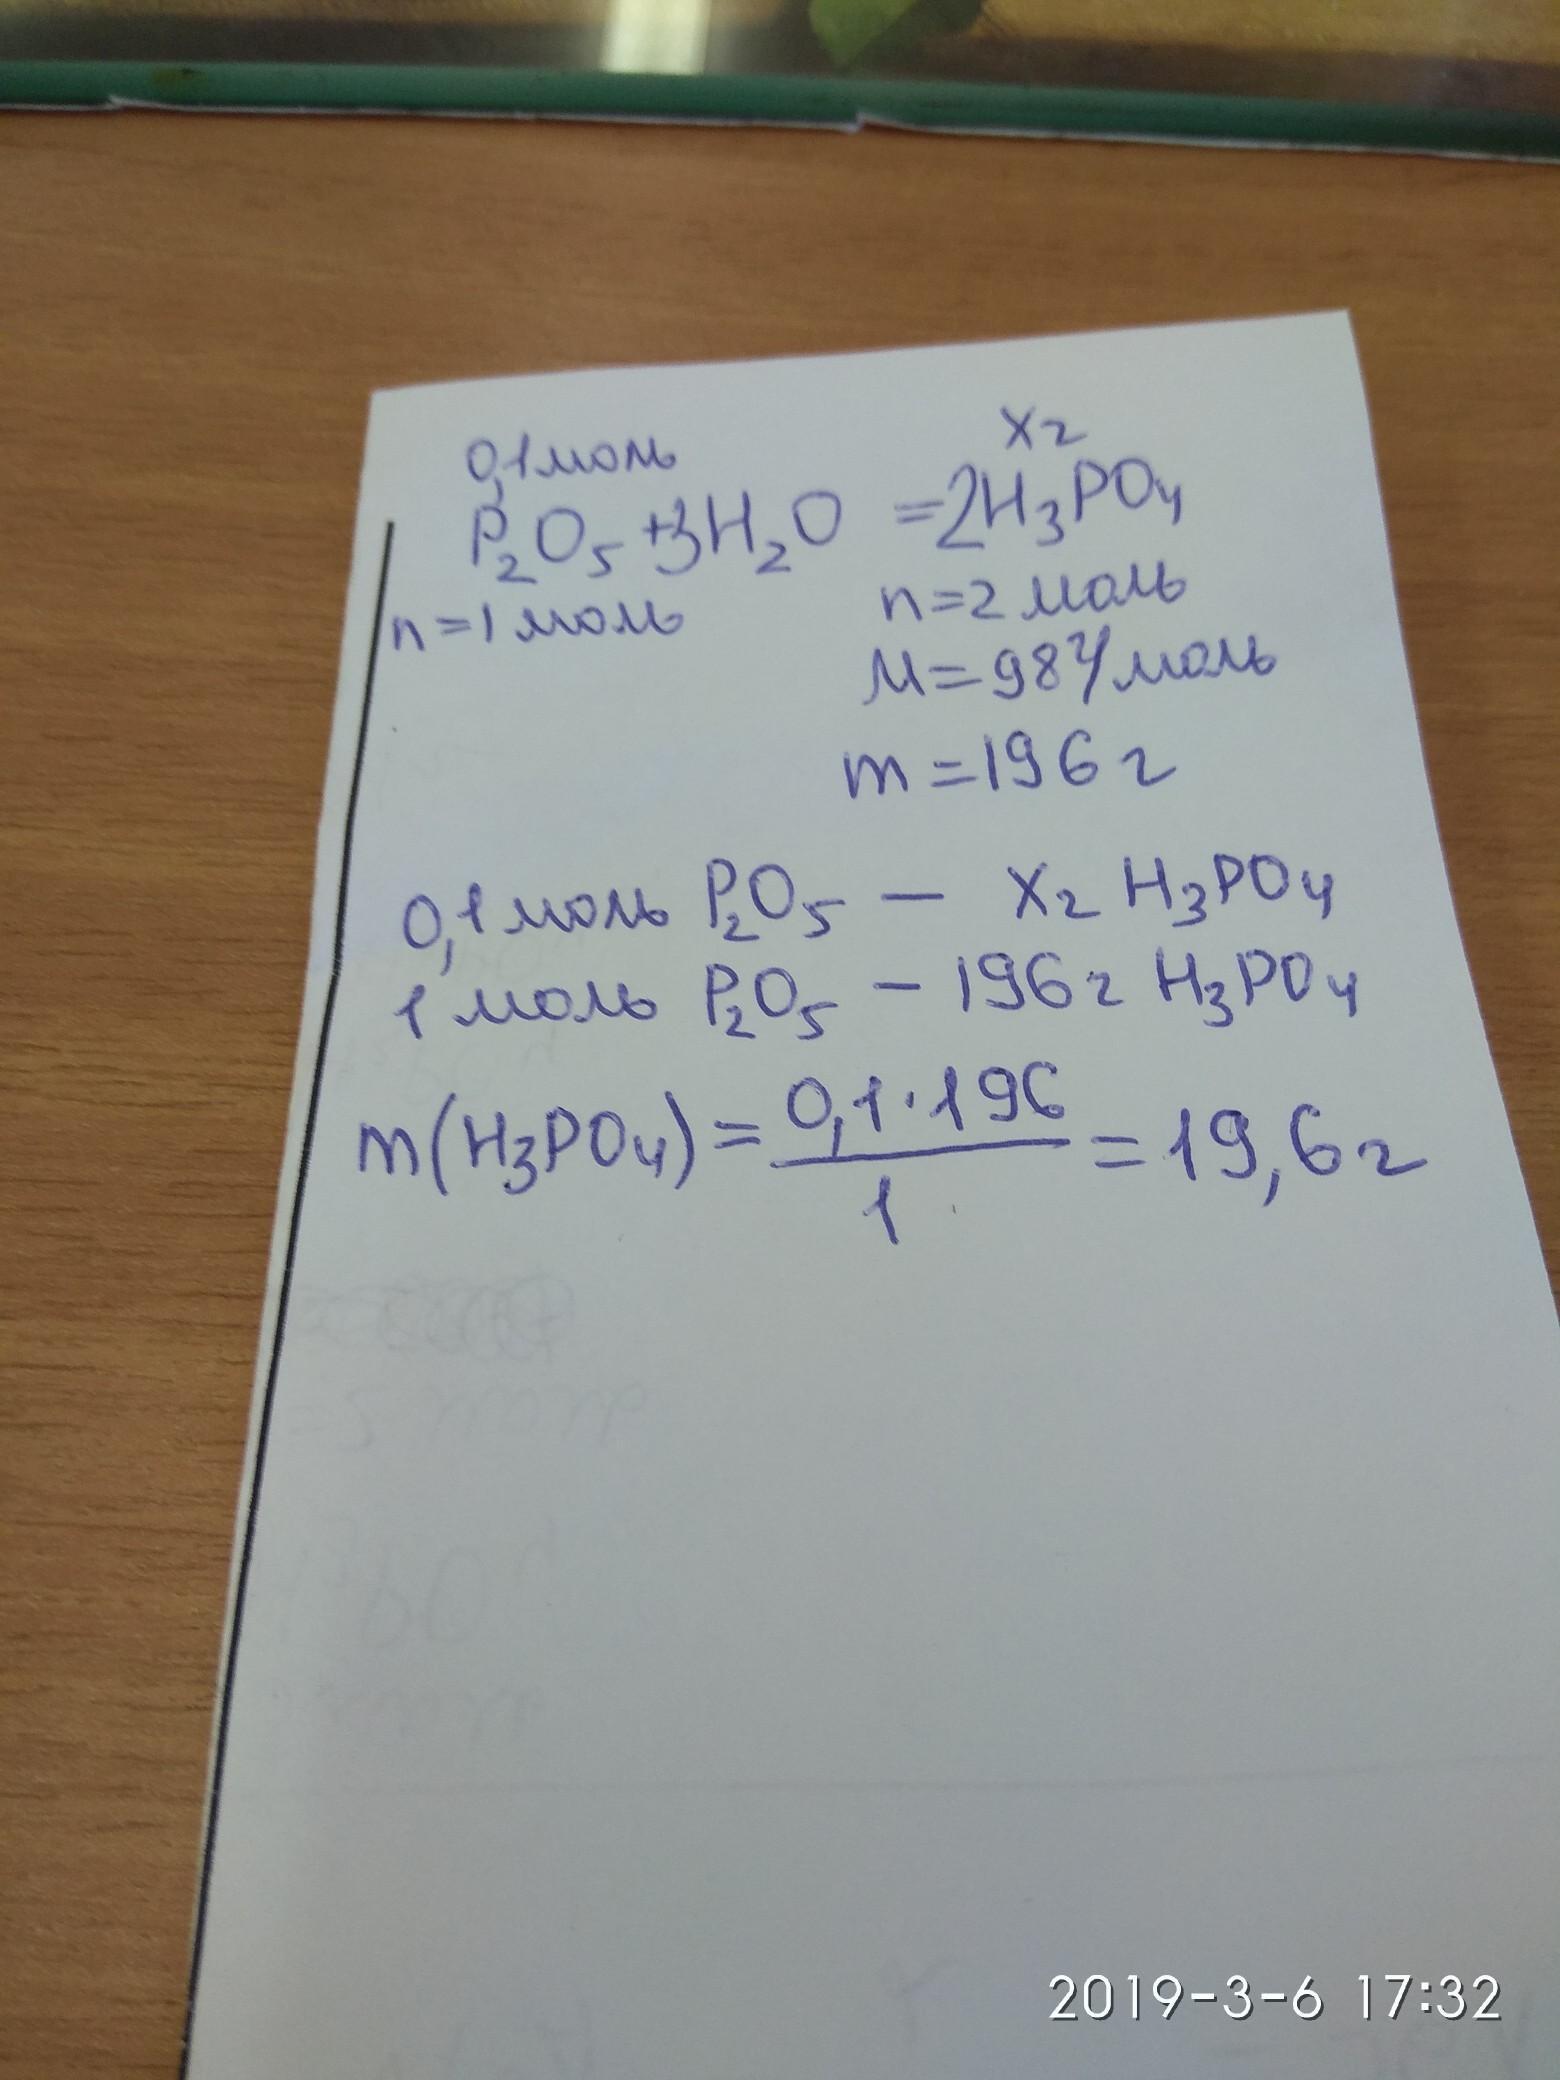 0,1 моль x г
P₂O₅ + 3H₂O = 2H₃PO₄
n = 1 моль n = 2 моль
M = 98 г/моль
m = 196 г
0,1 моль P₂O₅ — x г H₃PO₄
1 моль P₂O₅ — 196 г H₃PO₄
m(H₃PO₄) = 0,1 · 196 / 1 = 19,6 г
2019-3-6 17:32